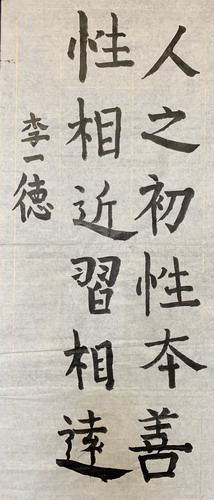 人之初性本善
性相近習相遠
李一德